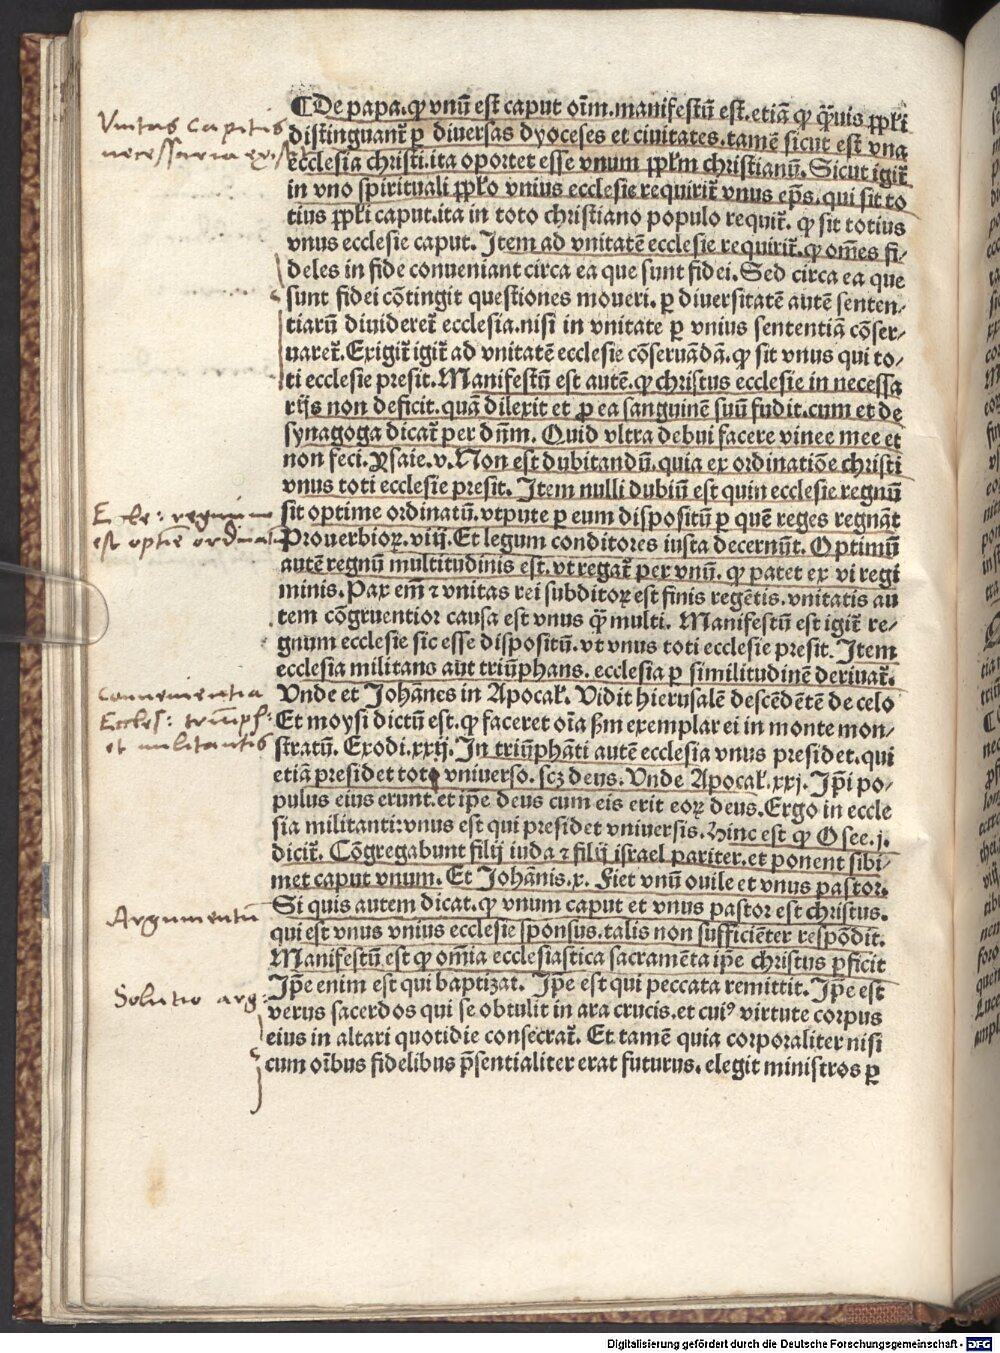 Vnitas capitis
necessaria
⸿De papa. ꝙ vnū est caput oīm. manifestū est. etiā ꝙ q̄uis ppłi
distinguant̄ ꝑ diuersas dyoceses et ciuitates. tamē sicut est vna
ecclesia christi. ita oportet esse vnum ppłm christianū. Sicut igit̄
in vno spirituali ppło vnius ecclesie requirit̄ vnus ep̄s. qui sit to
tius ppłi caput. ita in toto christiano populo requit̄. ꝙ sit totius
vnus ecclesie caput. Item ad vnitatē ecclesie requirit̄. ꝙ om̄es fi⸗
deles in fide conueniant circa ea que sunt fidei. Sed circa ea que
sunt fidei cōtingit questiones moueri. ꝑ diuersitatē autē senten⸗
tiarū diuideret̄ ecclesia. nisi in vnitate ꝑ vnius sententiā cōser⸗
uaret̄. Exigit̄ igit̄ ad vnitatē ecclesie cōseruādā. ꝙ sit vnus qui to⸗
ti ecclesie presit. Manifestū est autē. ꝙ christus ecclesie in necessa
rijs non deficit. quā dilexit et ꝓ ea sanguinē suū fudit. cum et de
synagoga dicat̄ per dn̄m. Quid vltra debui facere vinee mee et
non feci. Ysaie. v. Non est dubitandū. quia ex ordinatiōe christi
vnus toti ecclesie presit. Item nulli dubiū est quin ecclesie regnū
Eccle: regnum
est optie ordinatū
sit optime ordinatū. vtpute ꝑ eum dispositū ꝑ quē reges regnāt
Prouerbioꝝ. viij. Et legum conditores iusta decernūt. Optimū
autē regnū multitudinis est. vt regat̄ per vnū. ꝙ patet ex vi regi
minis. Pax em̄ ⁊ vnitas rei subditoꝝ est finis regētis. vnitatis au
tem cōgruentior causa est vnus q̄ multi. Manifestū est igit̄ re⸗
gnum ecclesie sic esse dispositū. vt vnus toti ecclesie presit. Item
ecclesia militans aut triūphans. ecclesia ꝑ similitudinē deriuat̄.
conuenientia
Eccles: triūph:
et militantis
Vnde et Johānes in Apocał. Vidit hierusalē descēdētē de celo
Et moysi dictū est. ꝙ faceret oīa ẜm exemplar ei in monte mon⸗
stratū. Exodi. xxij. In triūphāti autē ecclesia vnus presidet. qui
etiā presidet toto vniuerso. scꝫ deus. Vnde Apocał. xxj. Jp̄i po⸗
pulus eius erunt. et ip̄e deus cum eis erit eoꝝ deus. Ergo in eccle
sia militanti: vnus est qui presidet vniuersis. Hinc est ꝙ Osee. j.
dicit̄. Cōgregabunt filij iuda ⁊ filij israel pariter. et ponent sibi⸗
met caput vnum. Et Johānis. x. Fiet vnū ouile et vnus pastor.
Argumentū
Si quis autem dicat. ꝙ vnum caput et vnus pastor est christus.
qui est vnus vnius ecclesie sponsus. talis non sufficiēter respōdit.
Manifestū est ꝙ om̄ia ecclesiastica sacramēta ip̄e christus ꝑficit
Solutio arg:
Jp̄e enim est qui baptizat. Jp̄e est qui peccata remittit. Jp̄e est
verus sacerdos qui se obtulit in ara crucis. et cuiꝰ virtute corpus
eius in altari quotidie consecrat̄. Et tamē quia corporaliter nisi
cum oībus fidelibus p̄sentialiter erat futurus. elegit ministros ꝑ
Digitalisierung gefördert durch die Deutsche Forschungsgemeinschaft - DFG